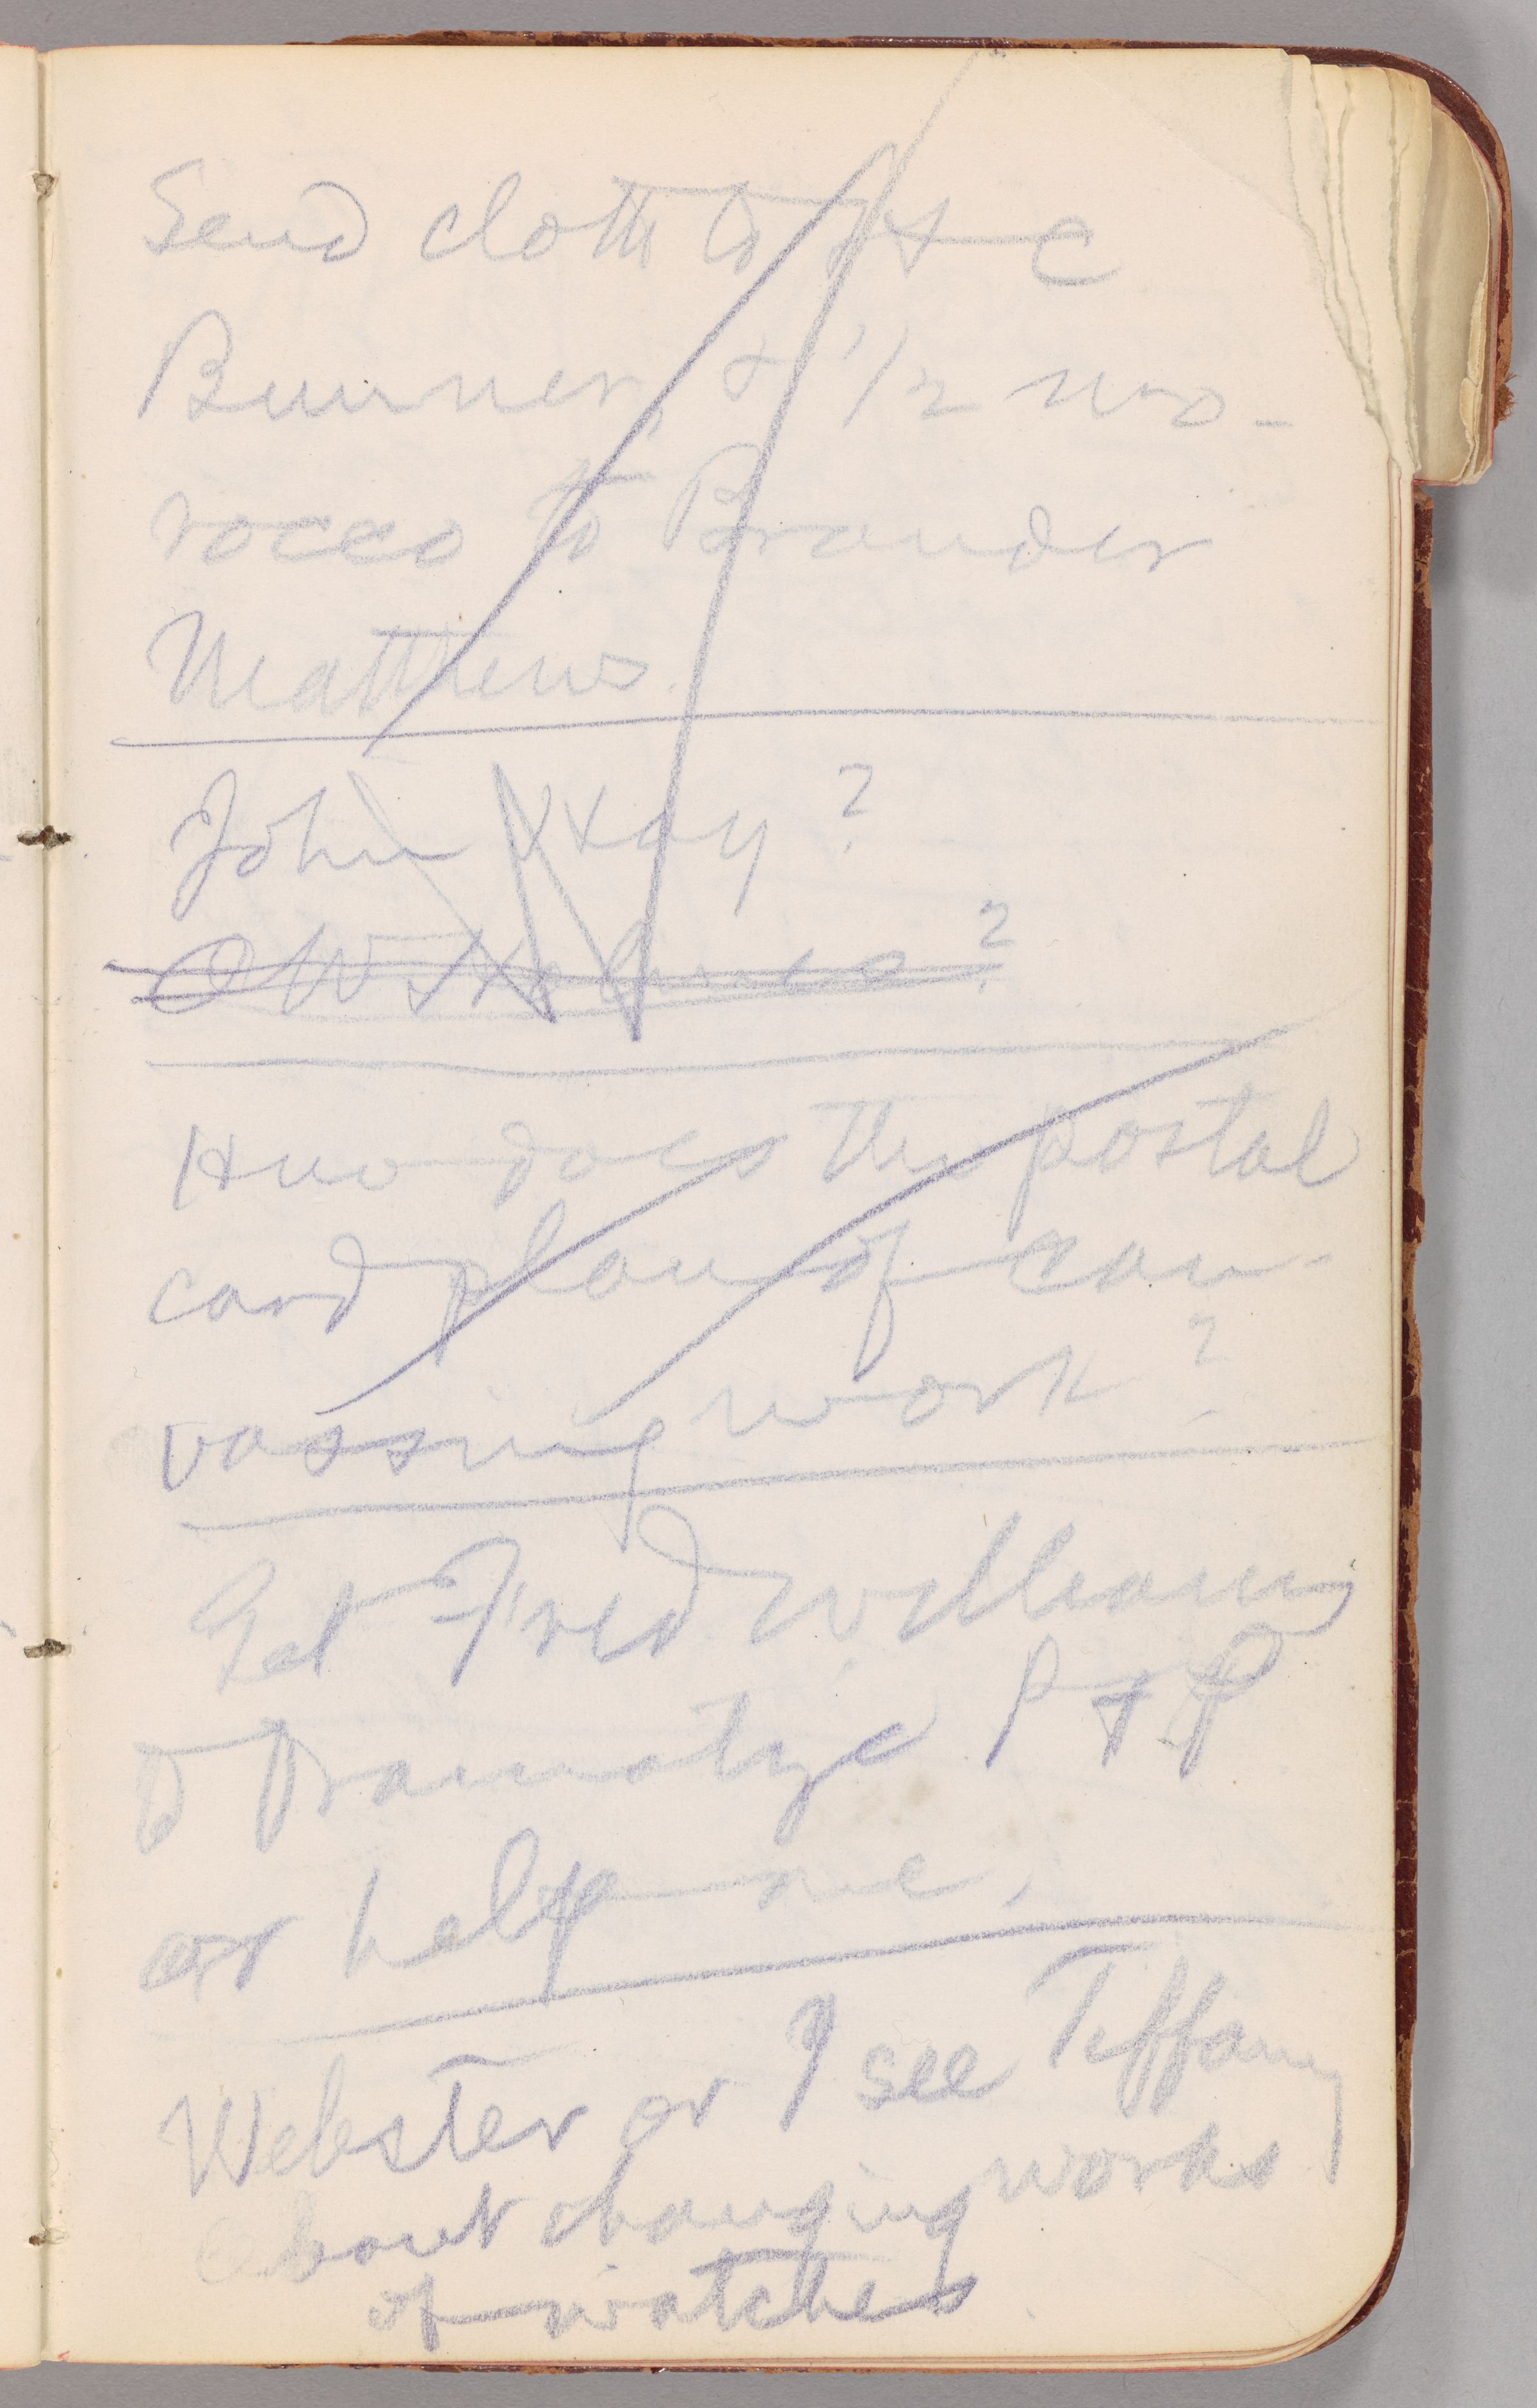 Send cloth to H C
Bunner, & 1/2 mo-
rocco to Brander
Matthews.
John Hay?
O W Holmes?
How does the postal
card plan of can-
vassing work?
Get Fred Williams
to dramatize P & P
or help me.
Webster or I see Tiffany
about changing works
of watches.